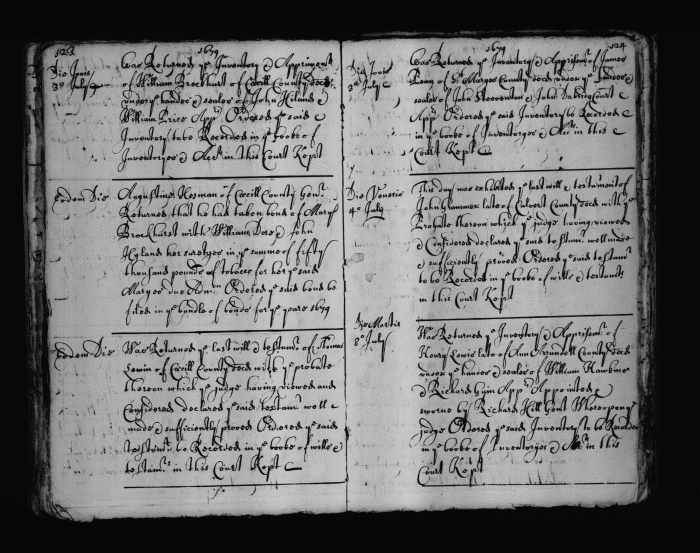 123
1679
Die Jovis
3º July
Was Returned ye Inventory & Apprismt
of William Brockhurst of Cecill County decd
under ye handes & seales of John Hiland &
William Price Appr Ordered ye said
Inventory to be Recorded in ye booke of
Inventoryes & Acts in this Court Kept
Eodem Die
Augustine Herman of Cecill County Gent
Returned that he had taken bond of Mary
Brockhurst with William Dare & John
Hyland her suretyes in ye summe of fifty
thousand pounds of tobacco for her ye said
Maryes due Admn Ordered ye said bond be
filed in ye bundle of bonds for ye yeare 1679
Eodem Die
Was Returned ye last will & testamt of Thomas
Lewin of Cecill County decd with ye probate
thereon which ye judge having viewed and
Considered declared ye said testamt well
made & sufficiently proved Ordered ye said
testamt to be Recorded in ye booke of wills &
testamts in this Court Kept
124
1679
Die Jovis
3º July
Was Returned ye Inventory & Apprismt of James
Pean of St Maryes County decd under ye handes &
seales of John & John Appr Ordered ye said Inventory to be Recorded
in ye booke of Inventoryes & Acts in this
Court Kept
Die Veneris
4º July
This day was exhibited ye last will & testament of
John late of Calvert County decd with ye
Probate thereon which ye judge having viewed
& Considered declared ye said testamt well made
& sufficiently proved Ordered ye said testamt
to be Recorded in ye booke of wills & testamts
in this Court Kept
Die Martis
8º July
Was Returned ye Inventory & Apprismt of
Henry Lewis late of Ann Arundell County decd
under ye handes & seales of William Hawkins
& Richard Gwin Apprs Appointed &
sworne by Richard Hill Gent Whereupon ye
judge Ordered ye said Inventory to be Recorded
in ye booke of Inventoryes & Acts in this
Court Kept